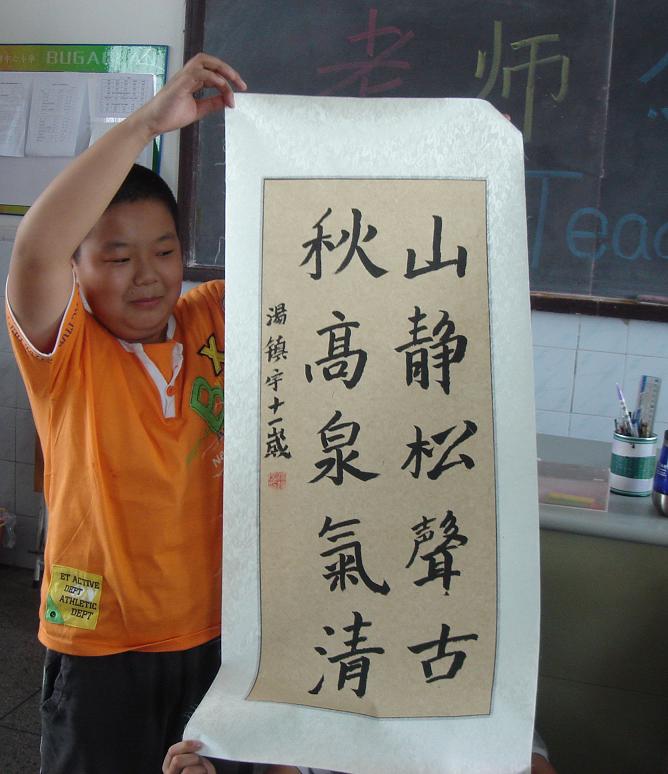 山静松聲古
秋髙泉氣清
湯鎮宇十一歲
老师
Teac
BUGA
ET ACTIVE
DEPT
ATHLETIC
DEPT